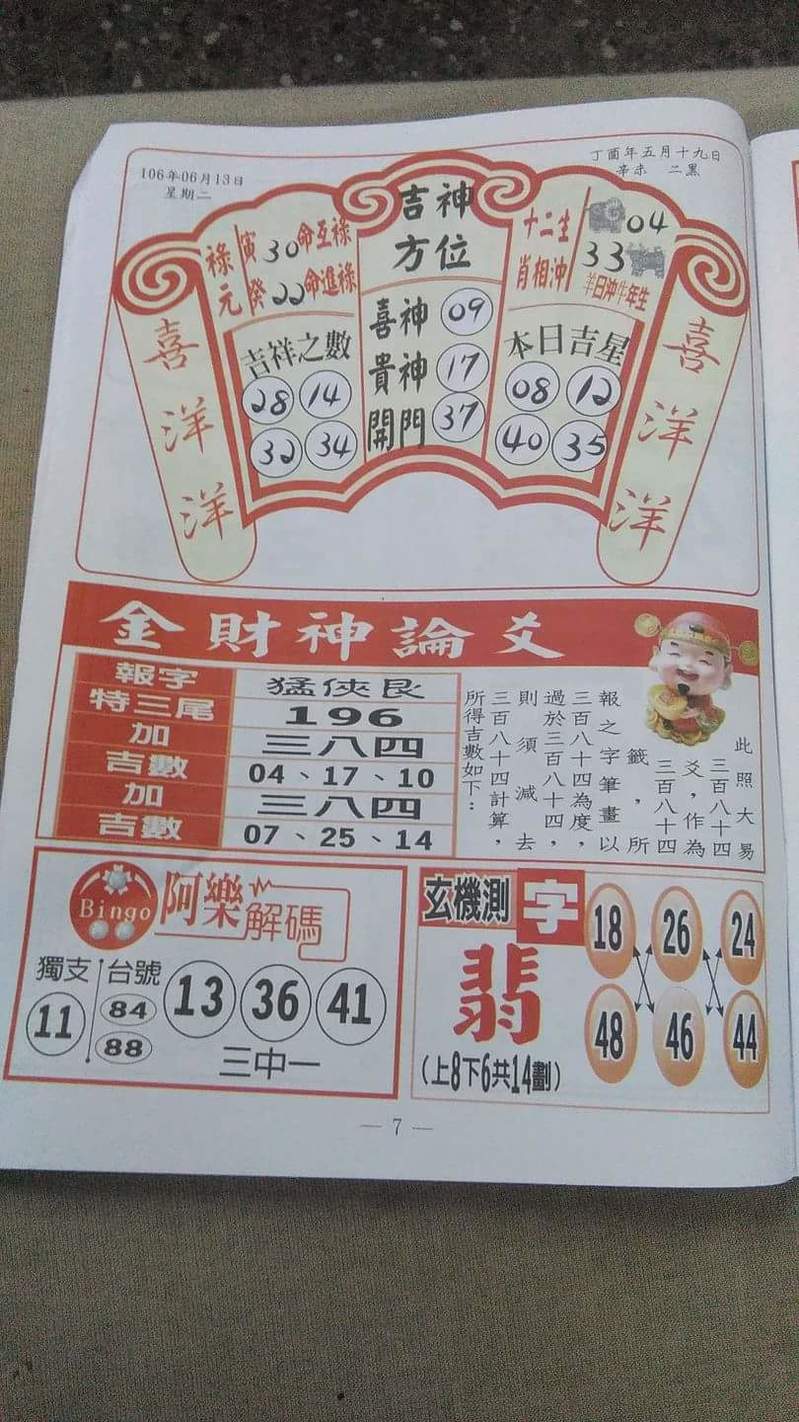 106年06月13日
星期二
丁酉年五月十九日
辛未 二黑
祿元
寅30命互祿
癸22命進祿
吉神
方位
十二生
肖相沖
04
33
羊日沖牛年生
喜洋洋
吉祥之數
28 14
32 34
喜神 09
貴神 17
開門 37
本日吉星
08 12
40 35
喜洋洋
金財神論爻
報字 猛俠艮
特三尾 196
加 三八四
吉數 04、17、10
加 三八四
吉數 07、25、14
此照大易
三百八十四
爻，作為
三百八十四
籤，所
報之字筆畫以
三百八十四為度，
過於三百八十四，
則須減去
三百八十四計算，
所得吉數如下：
Bingo 阿樂解碼
獨支 台號
11
84
88
13 36 41
三中一
玄機測字
翡
(上8下6共14劃)
18 26 24
48 46 44
— 7 —